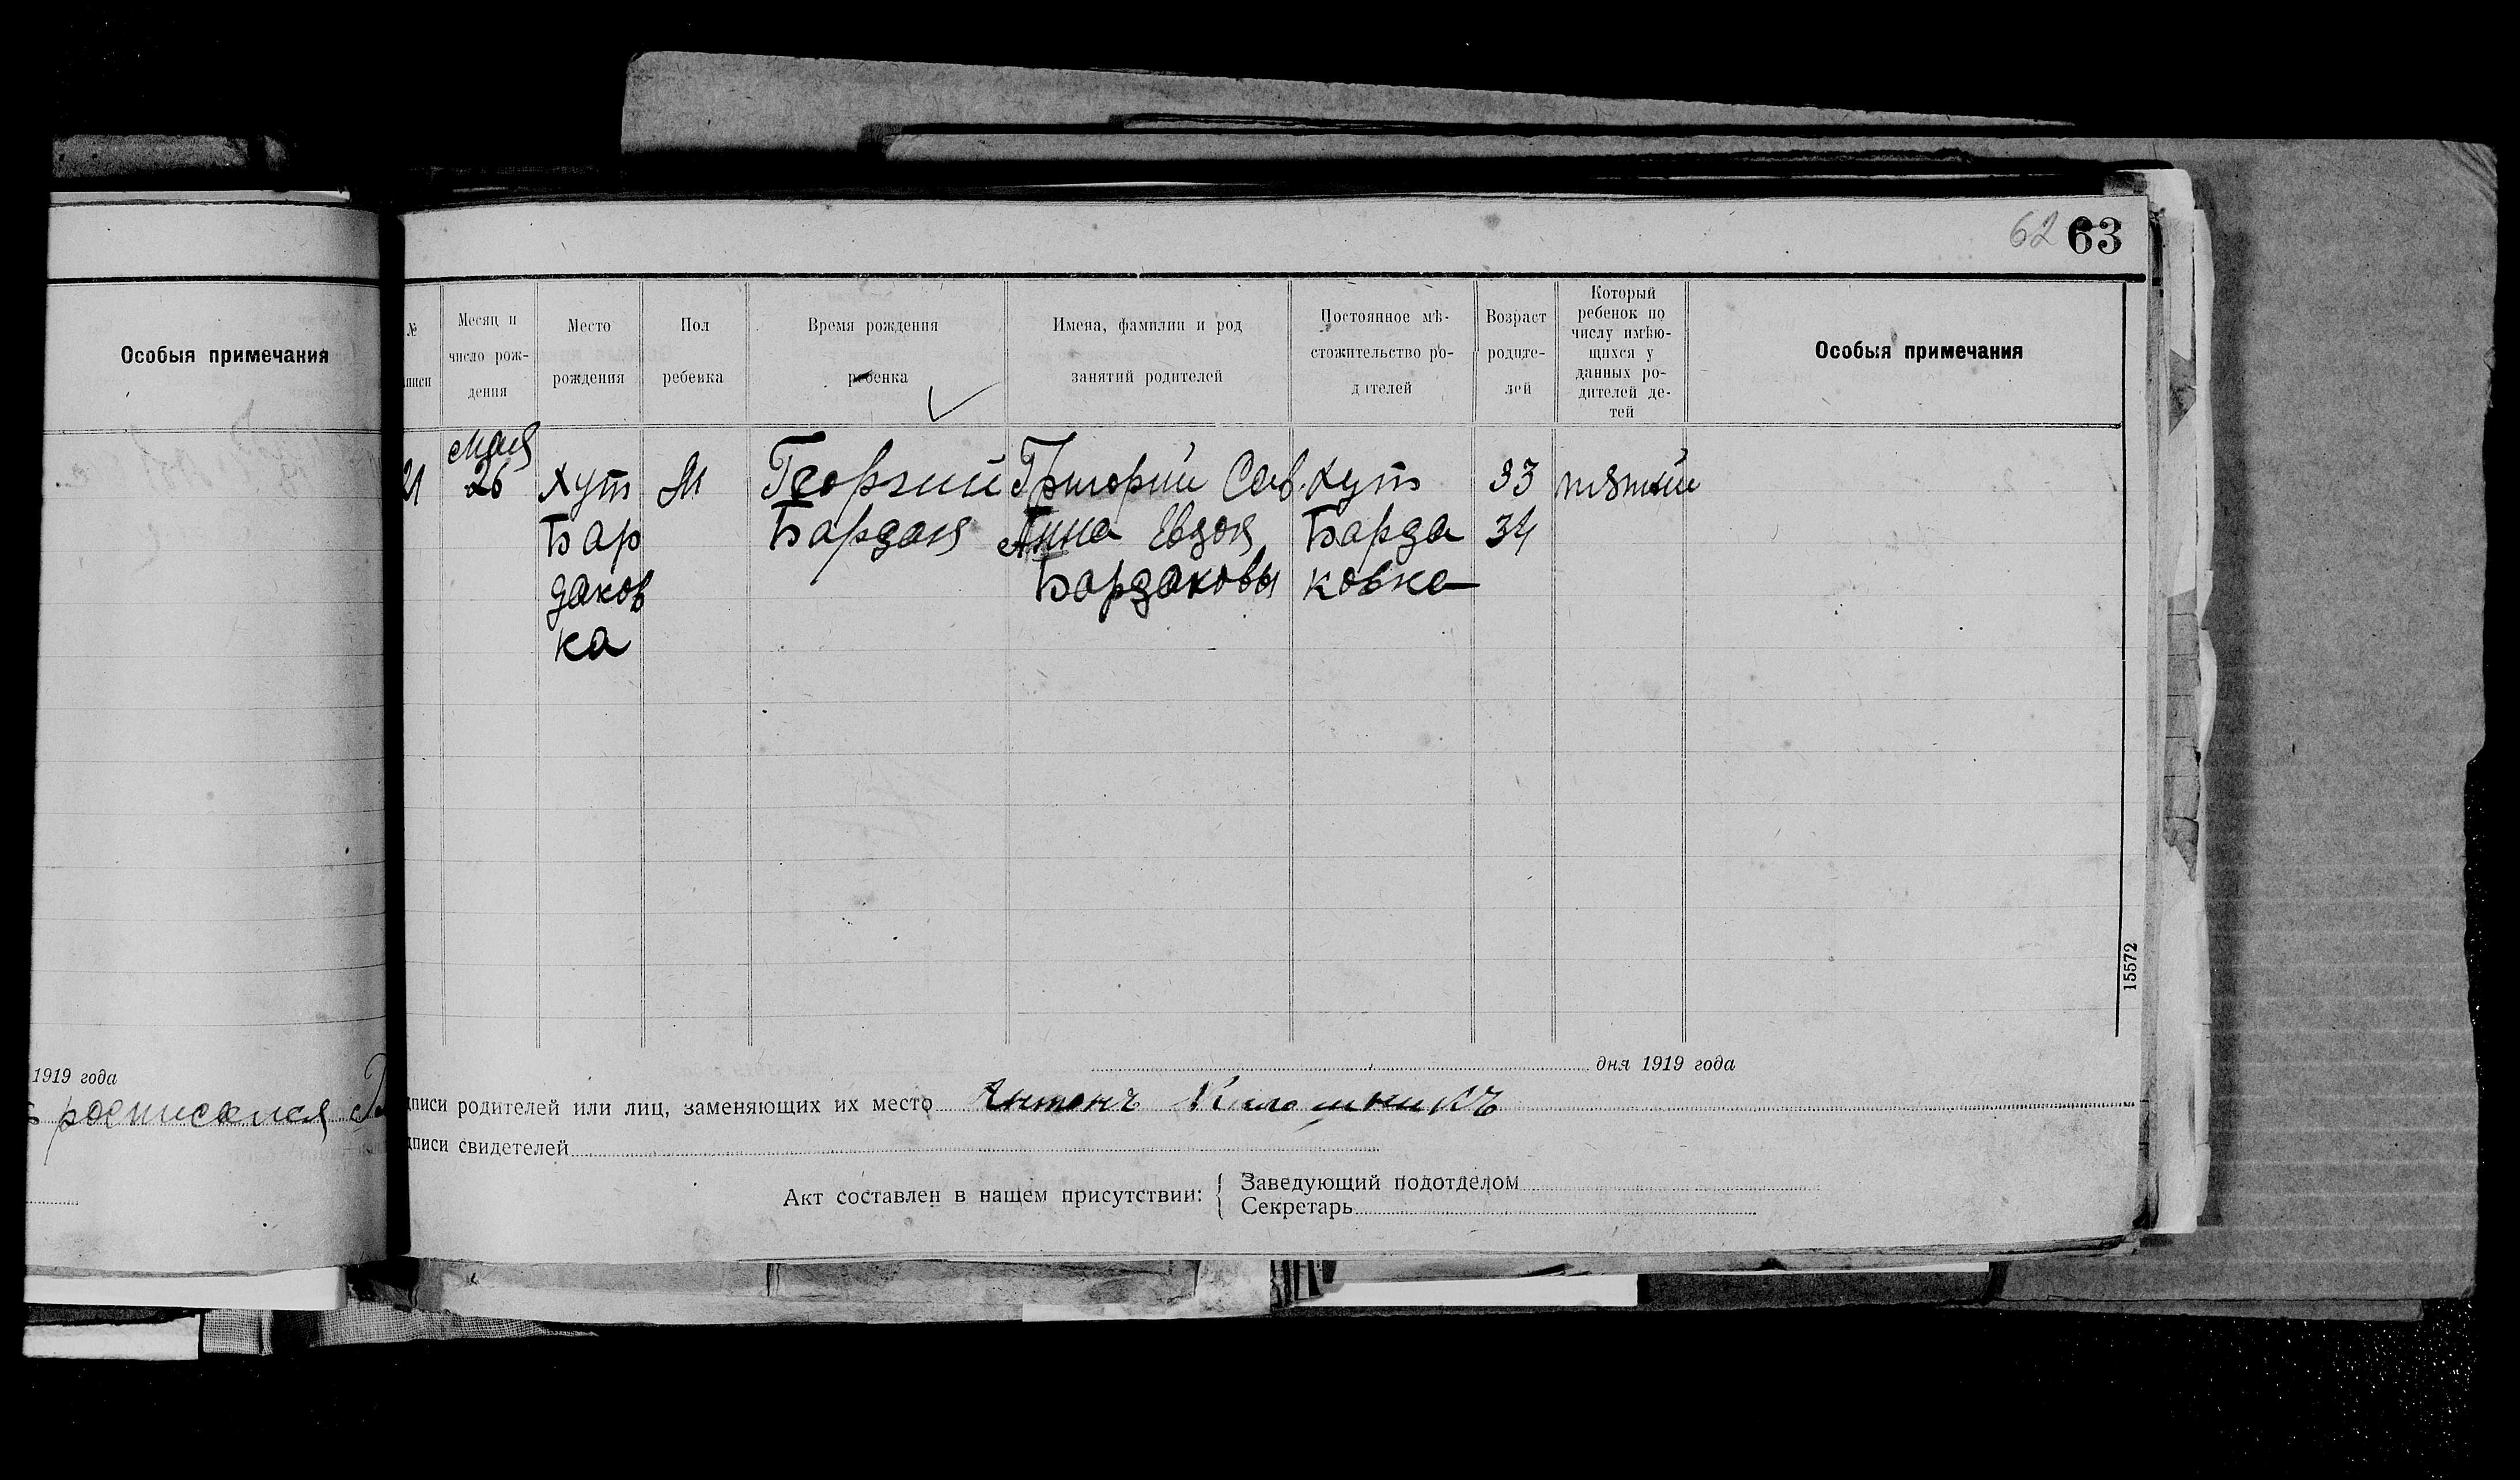 62 63
Особыя примечания
№
Месяц и
число рож-
дения
Место
рождения
Пол
ребенка
Время рождения
ребенка
Имена, фамилии и род
занятий родителей
Постоянное мѣ-
стожительство ро-
дителей
Возраст
родите-
лей
Который
ребенок по
числу имѣю-
щихся у
данных ро-
дителей де-
тей
Особыя примечания
21
Мая
26
Хут
Бар
даков
ка
М
Георгий
Бардак
Григорий Сав.
Анна Евдок
Бардаковы
Хут
Барда
ковка
33
34
пятый
15572
1919 года
росписался
дня 1919 года
дписи родителей или лиц, заменяющих их место Антонъ
дписи свидетелей
Акт составлен в нащем присутствии:
Заведующий подотделом
Секретарь